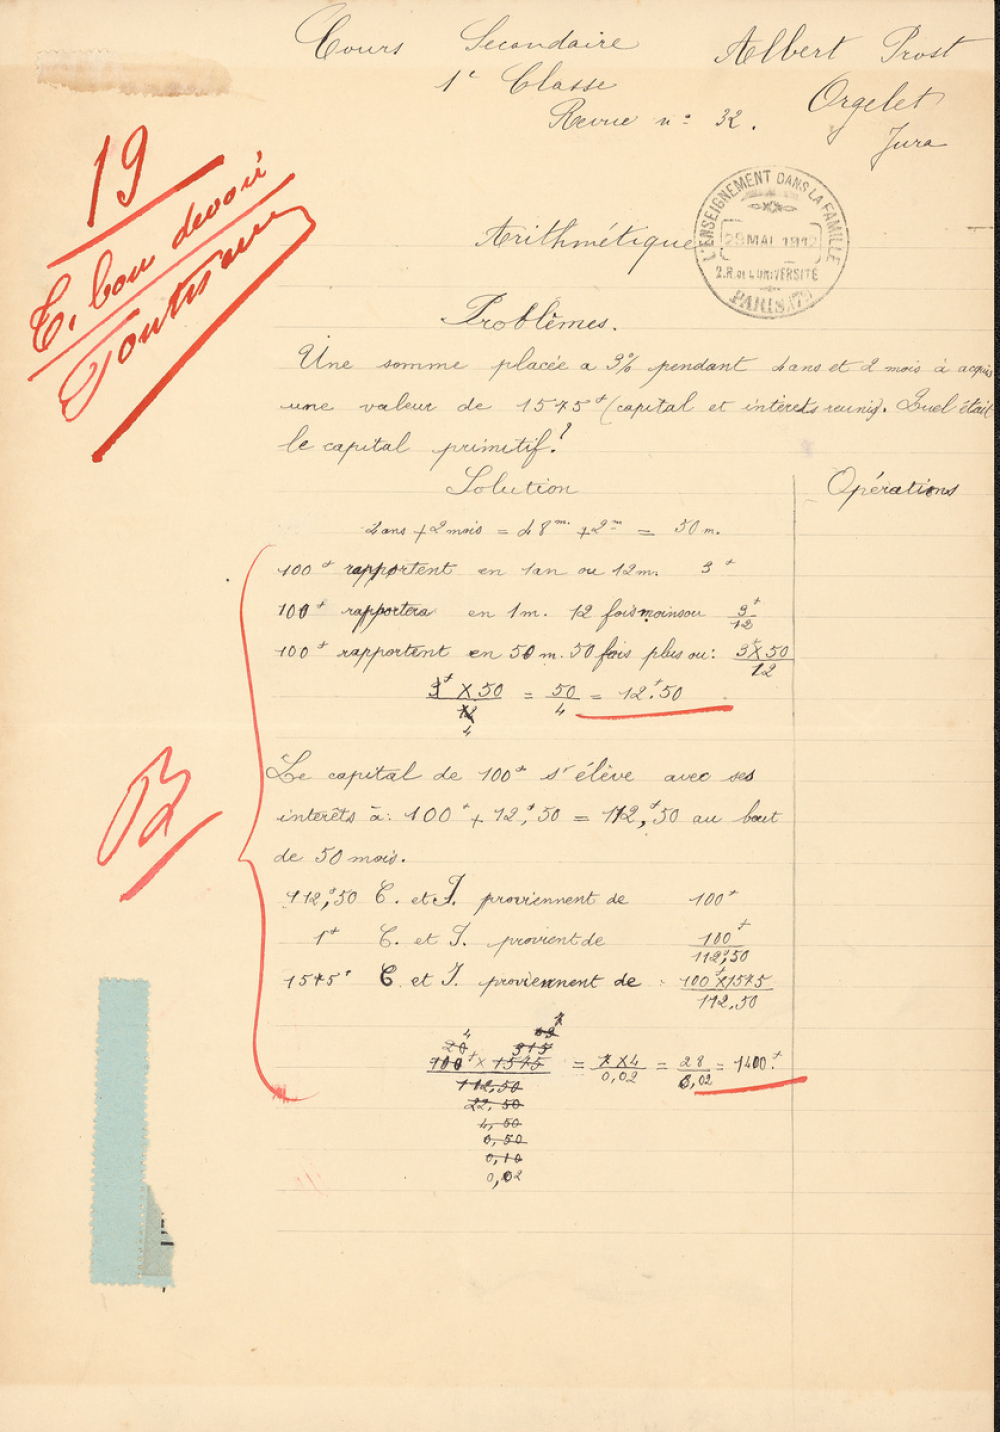 Cours Secondaire Albert Prost
1e Classe Orgelet
Revue n° 32. Jura
19
T. bon devoir
L'ENSEIGNEMENT DANS LA FAMILLE
29 MAI 1912
2.R. de L'UNIVERSITÉ
PARIS (7e)
Arithmétique
Problèmes.
Une somme placée a 3% pendant 4 ans et 2 mois à acquis
une valeur de 1575f (capital et intérêts reunis). Quel était
le capital primitif?
Solution Opérations
4 ans + 2 mois = 48m. + 2m = 50 m.
100f rapportent en 1 an ou 12 m. 3f
100f rapportera en 1 m. 12 fois moins ou 3f/12
100f rapportent en 50 m. 50 fois plus ou: 3f X 50/12
3f X 50/12 4 = 50/4 = 12f.50
Le capital de 100f s'élève avec ses
B
interêts à: 100f + 12f,50 = 112f,50 au bout
de 50 mois.
112f,50 C. et I. proviennent de 100f
1f C. et I. provient de 100f/112f,50
1575f C et I. proviennent de : 100f X 1575/112,50
4 7
20 315 63
100f X 1575 = 7 X 4/0,02 = 28/0,02 = 1400f.
112,50
22,50
4,50
0,50
0,10
0,02